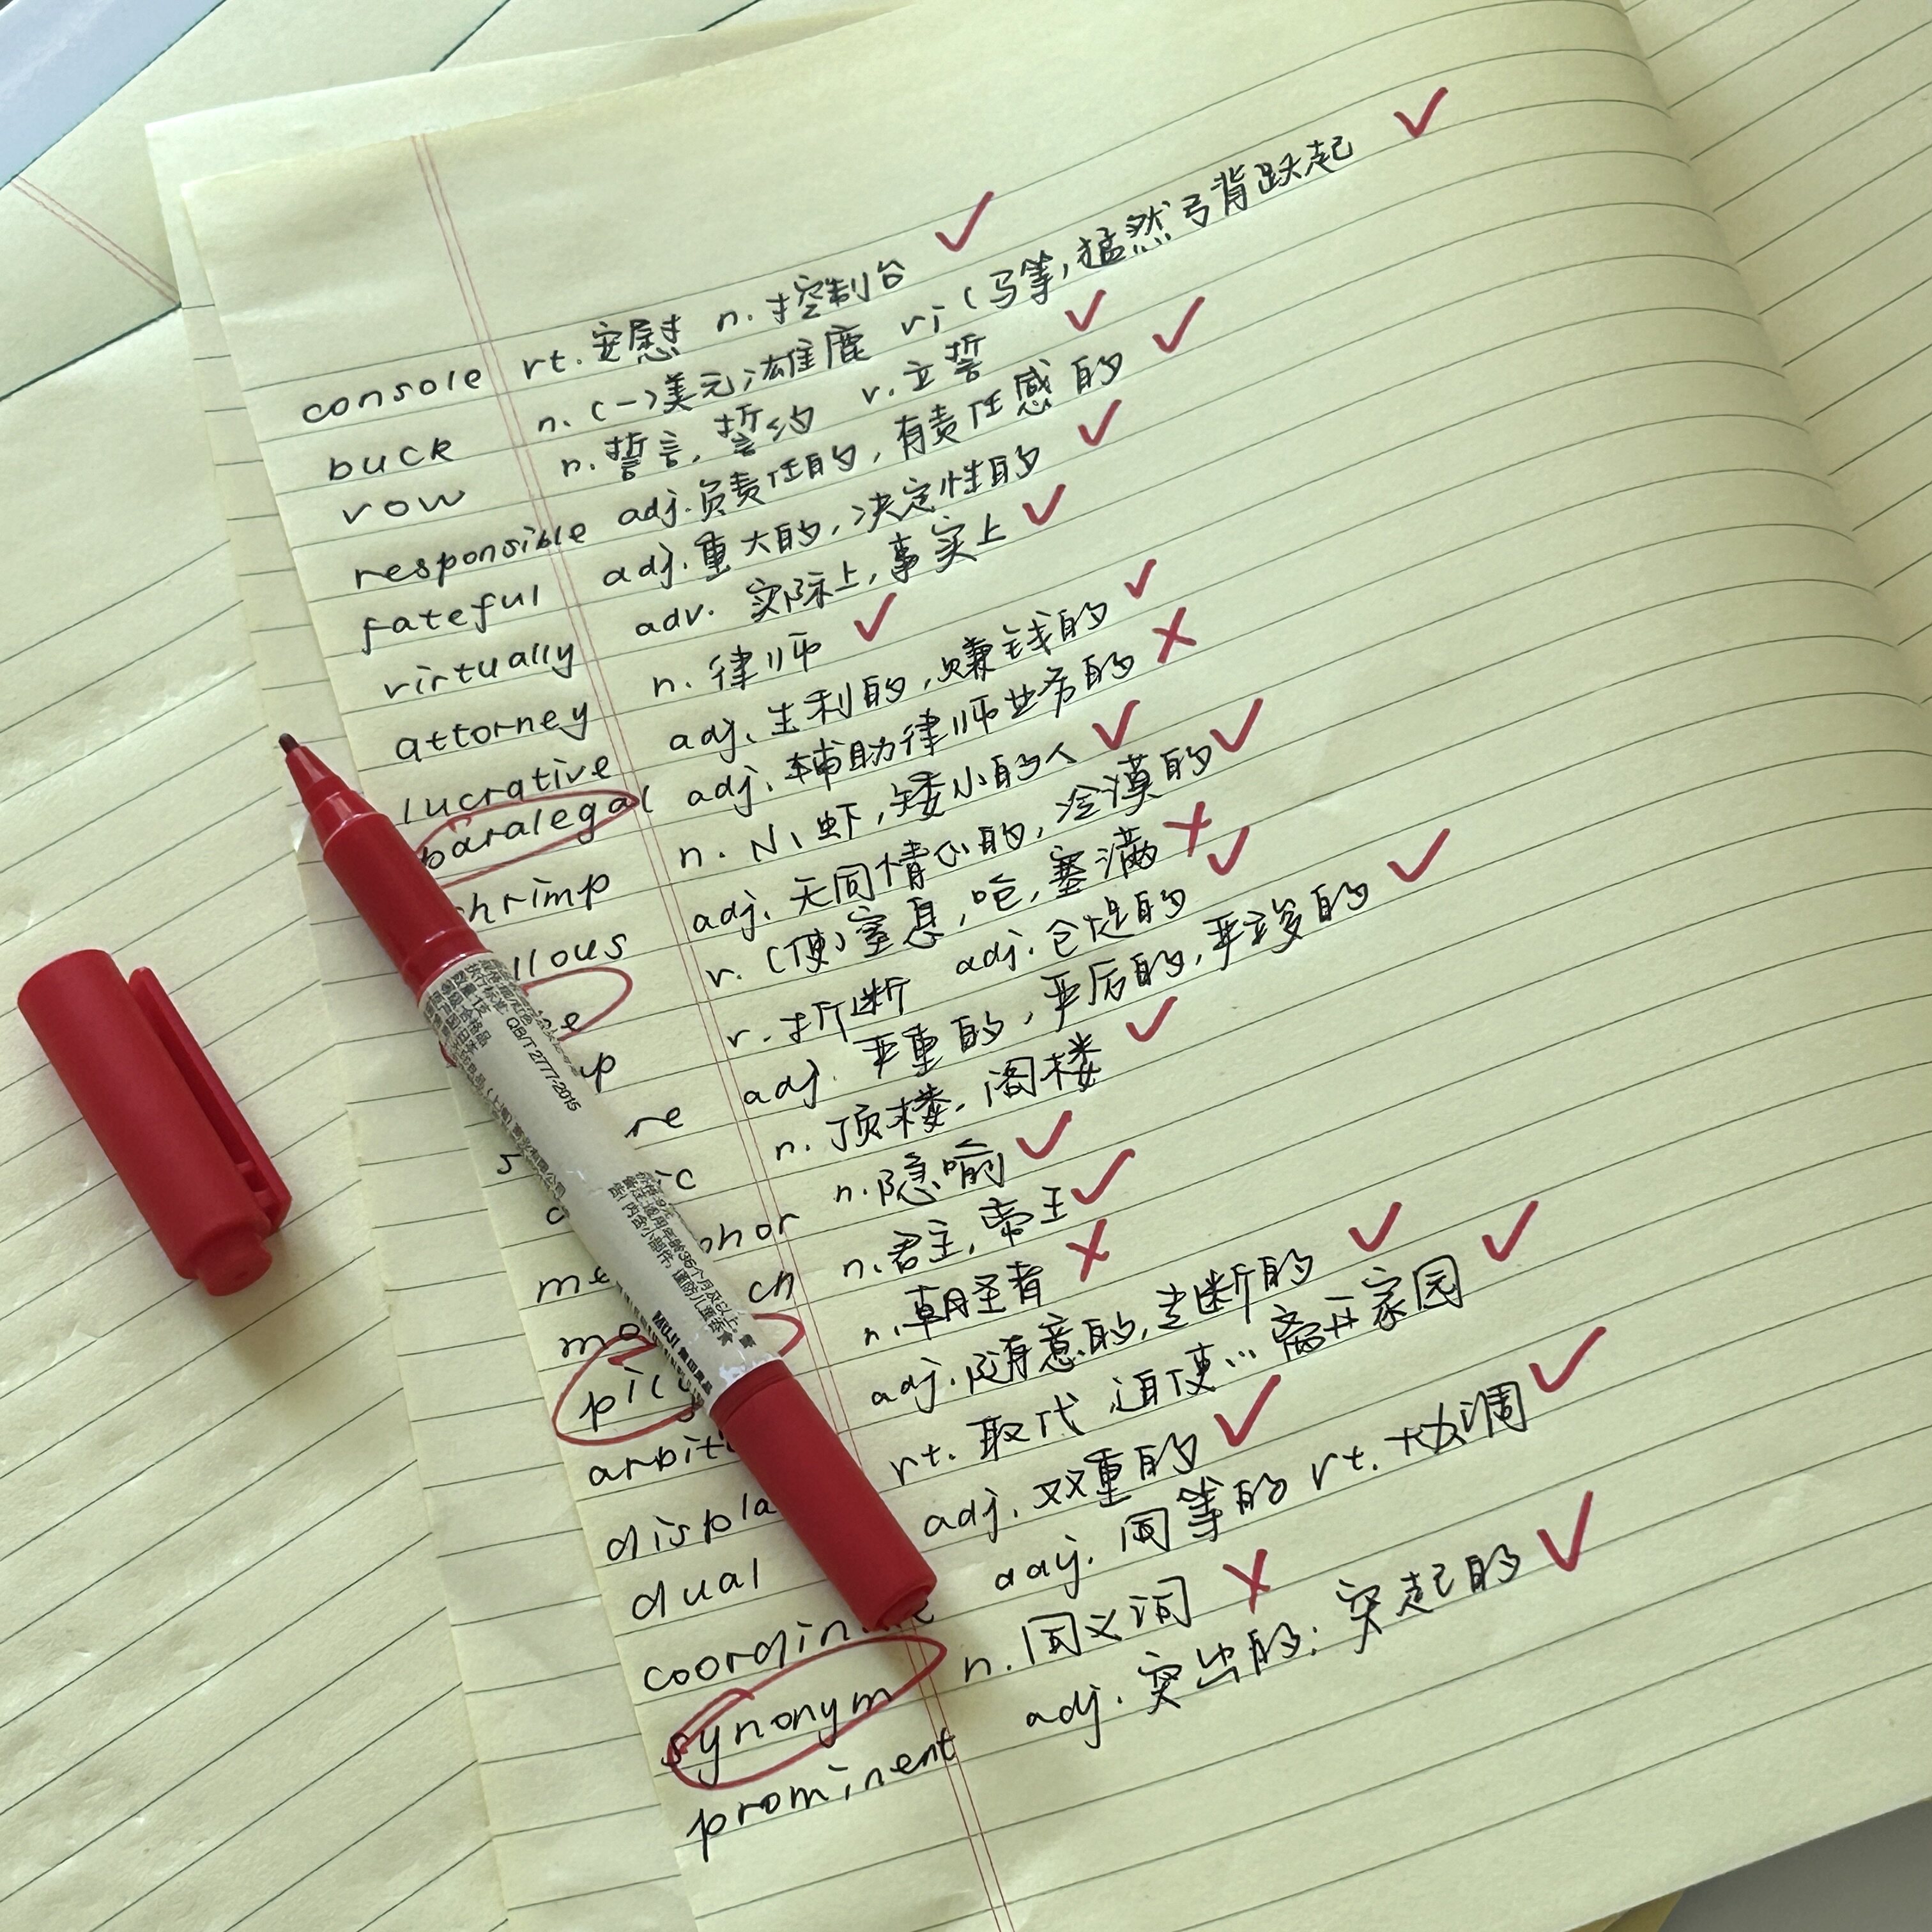 console vt. 安慰 n. 控制台
buck n. (一)美元;雄鹿 vi (马等)猛然弓背跃起
vow n. 誓言, 誓约 v. 立誓
responsible adj. 负责任的, 有责任感的
fateful adj. 重大的, 决定性的
virtually adv. 实际上, 事实上
attorney n. 律师
lucrative adj. 生利的, 赚钱的
paralegal adj. 辅助律师业务的
hrimp n. 小虾, 矮小的人
llous adj. 无同情心的, 冷漠的
e v. (使)窒息, 呛, 塞满
p v. 折断 adj. 仓促的
re adj. 严重的, 严厉的, 严峻的
ic n. 顶楼, 阁楼
me phor n. 隐喻
mo ch n. 君主, 帝王
pilg n. 朝圣者
arbit adj. 随意的, 专断的
displa vt. 取代 迫使… 离开家园
dual adj. 双重的
coordin e adj. 同等的 vt. 协调
synonym n. 同义词
prominent adj. 突出的; 突起的
QB/T 2777-2015
MUJI 無印良品